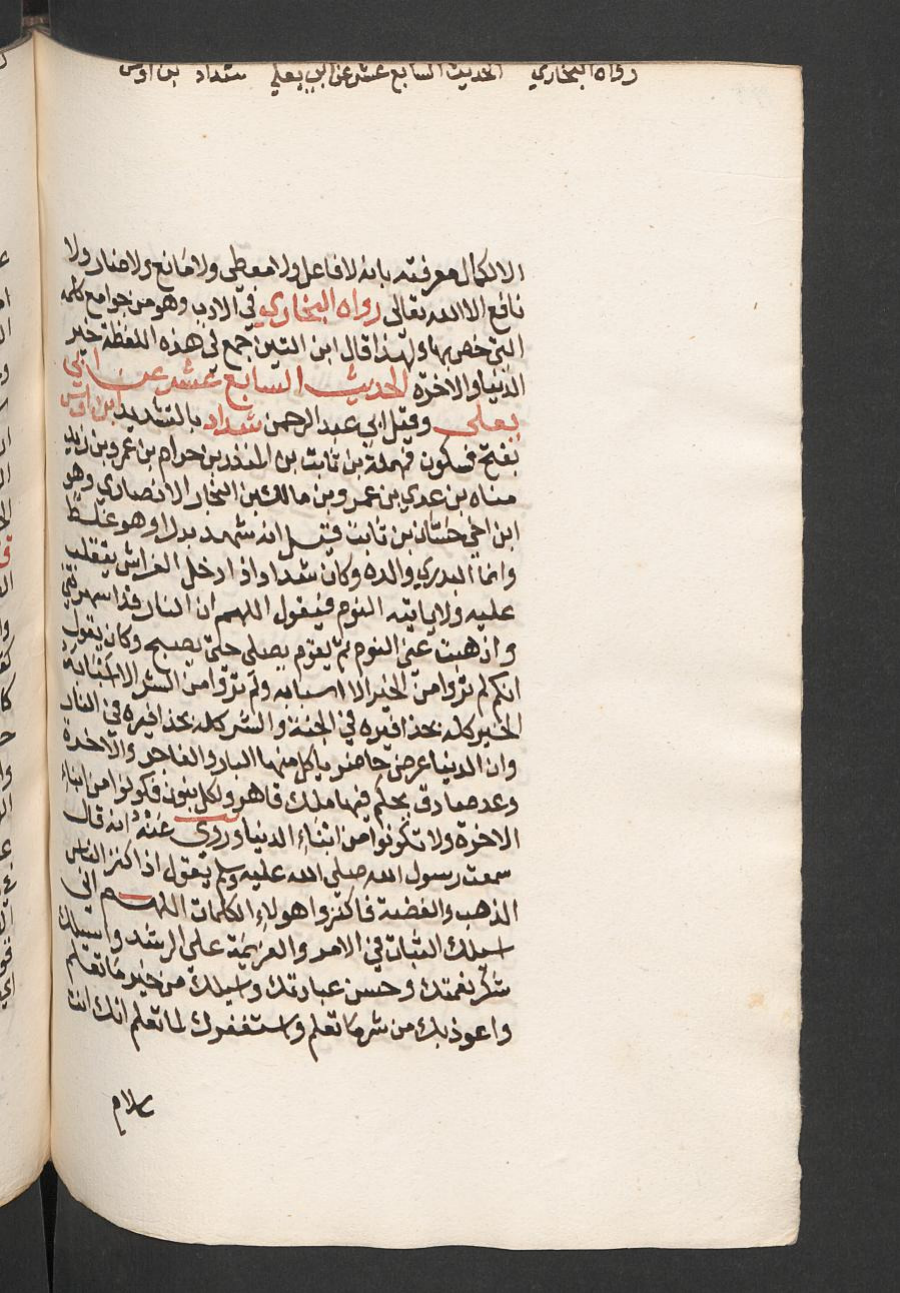 رواه البخاري الحديث السابع عشر عن ابي يعلي شداد بن اوس
الا لكمال معرفته بانه لا فاعل ولا معطي ولا مانع ولا ضار ولا
نافع الا الله تعالى رواه البخاري في الادب وهو من جوامع كلمه
التي خص بها ولهذا قال ابن التين جمع في هذه اللفظة خير
الدنيا والاخرة الحديث السابع عشر عن ابي
يعلى وقيل ابي عبد الرحمن شداد بالتشديد ابن اوس
بفتح فسكون فمهملة بن ثابت بن المنذر بن حرام بن عمرو بن زيد
مناه بن عدي بن عمرو بن مالك بن النجار الانصاري وهو
ابن اخي حسان بن ثابت قيل انه شهد بدرا وهو غلط
وانما البدري والده وكان شداد اذا دخل الفراش يتقلب
عليه ولا ياتيه النوم فيقول اللهم ان النار قد اسهرتني
واذهبت عني النوم ثم يقوم يصلي حتى يصبح وكان يقول
انكم لم تروا من الخير الا اسبابه ولم تروا من الشر الا اسبابه
الخير كله بحذافيره في الجنة والشر كله بحذافيره في النار
وان الدنيا عرض حاضر ياكل منها البار والفاجر والاخرة
وعد صادق يحكم فيها ملك قاهر ولكل بنون فكونوا من ابناء
الاخرة ولا تكونوا من ابناء الدنيا وروى عنه انه قال
سمعت رسول الله صلى الله عليه وسلم يقول اذا كنز الناس
الذهب والفضة فاكنزوا هولاء الكلمات اللهم اني
اسيلك الثبات في الامر والعزيمة على الرشد واسيلك
شكر نعمتك وحسن عبادتك واسيلك من خير ما تعلم
واعوذ بك من شر ما تعلم واستغفرك لما تعلم انك انت
علام